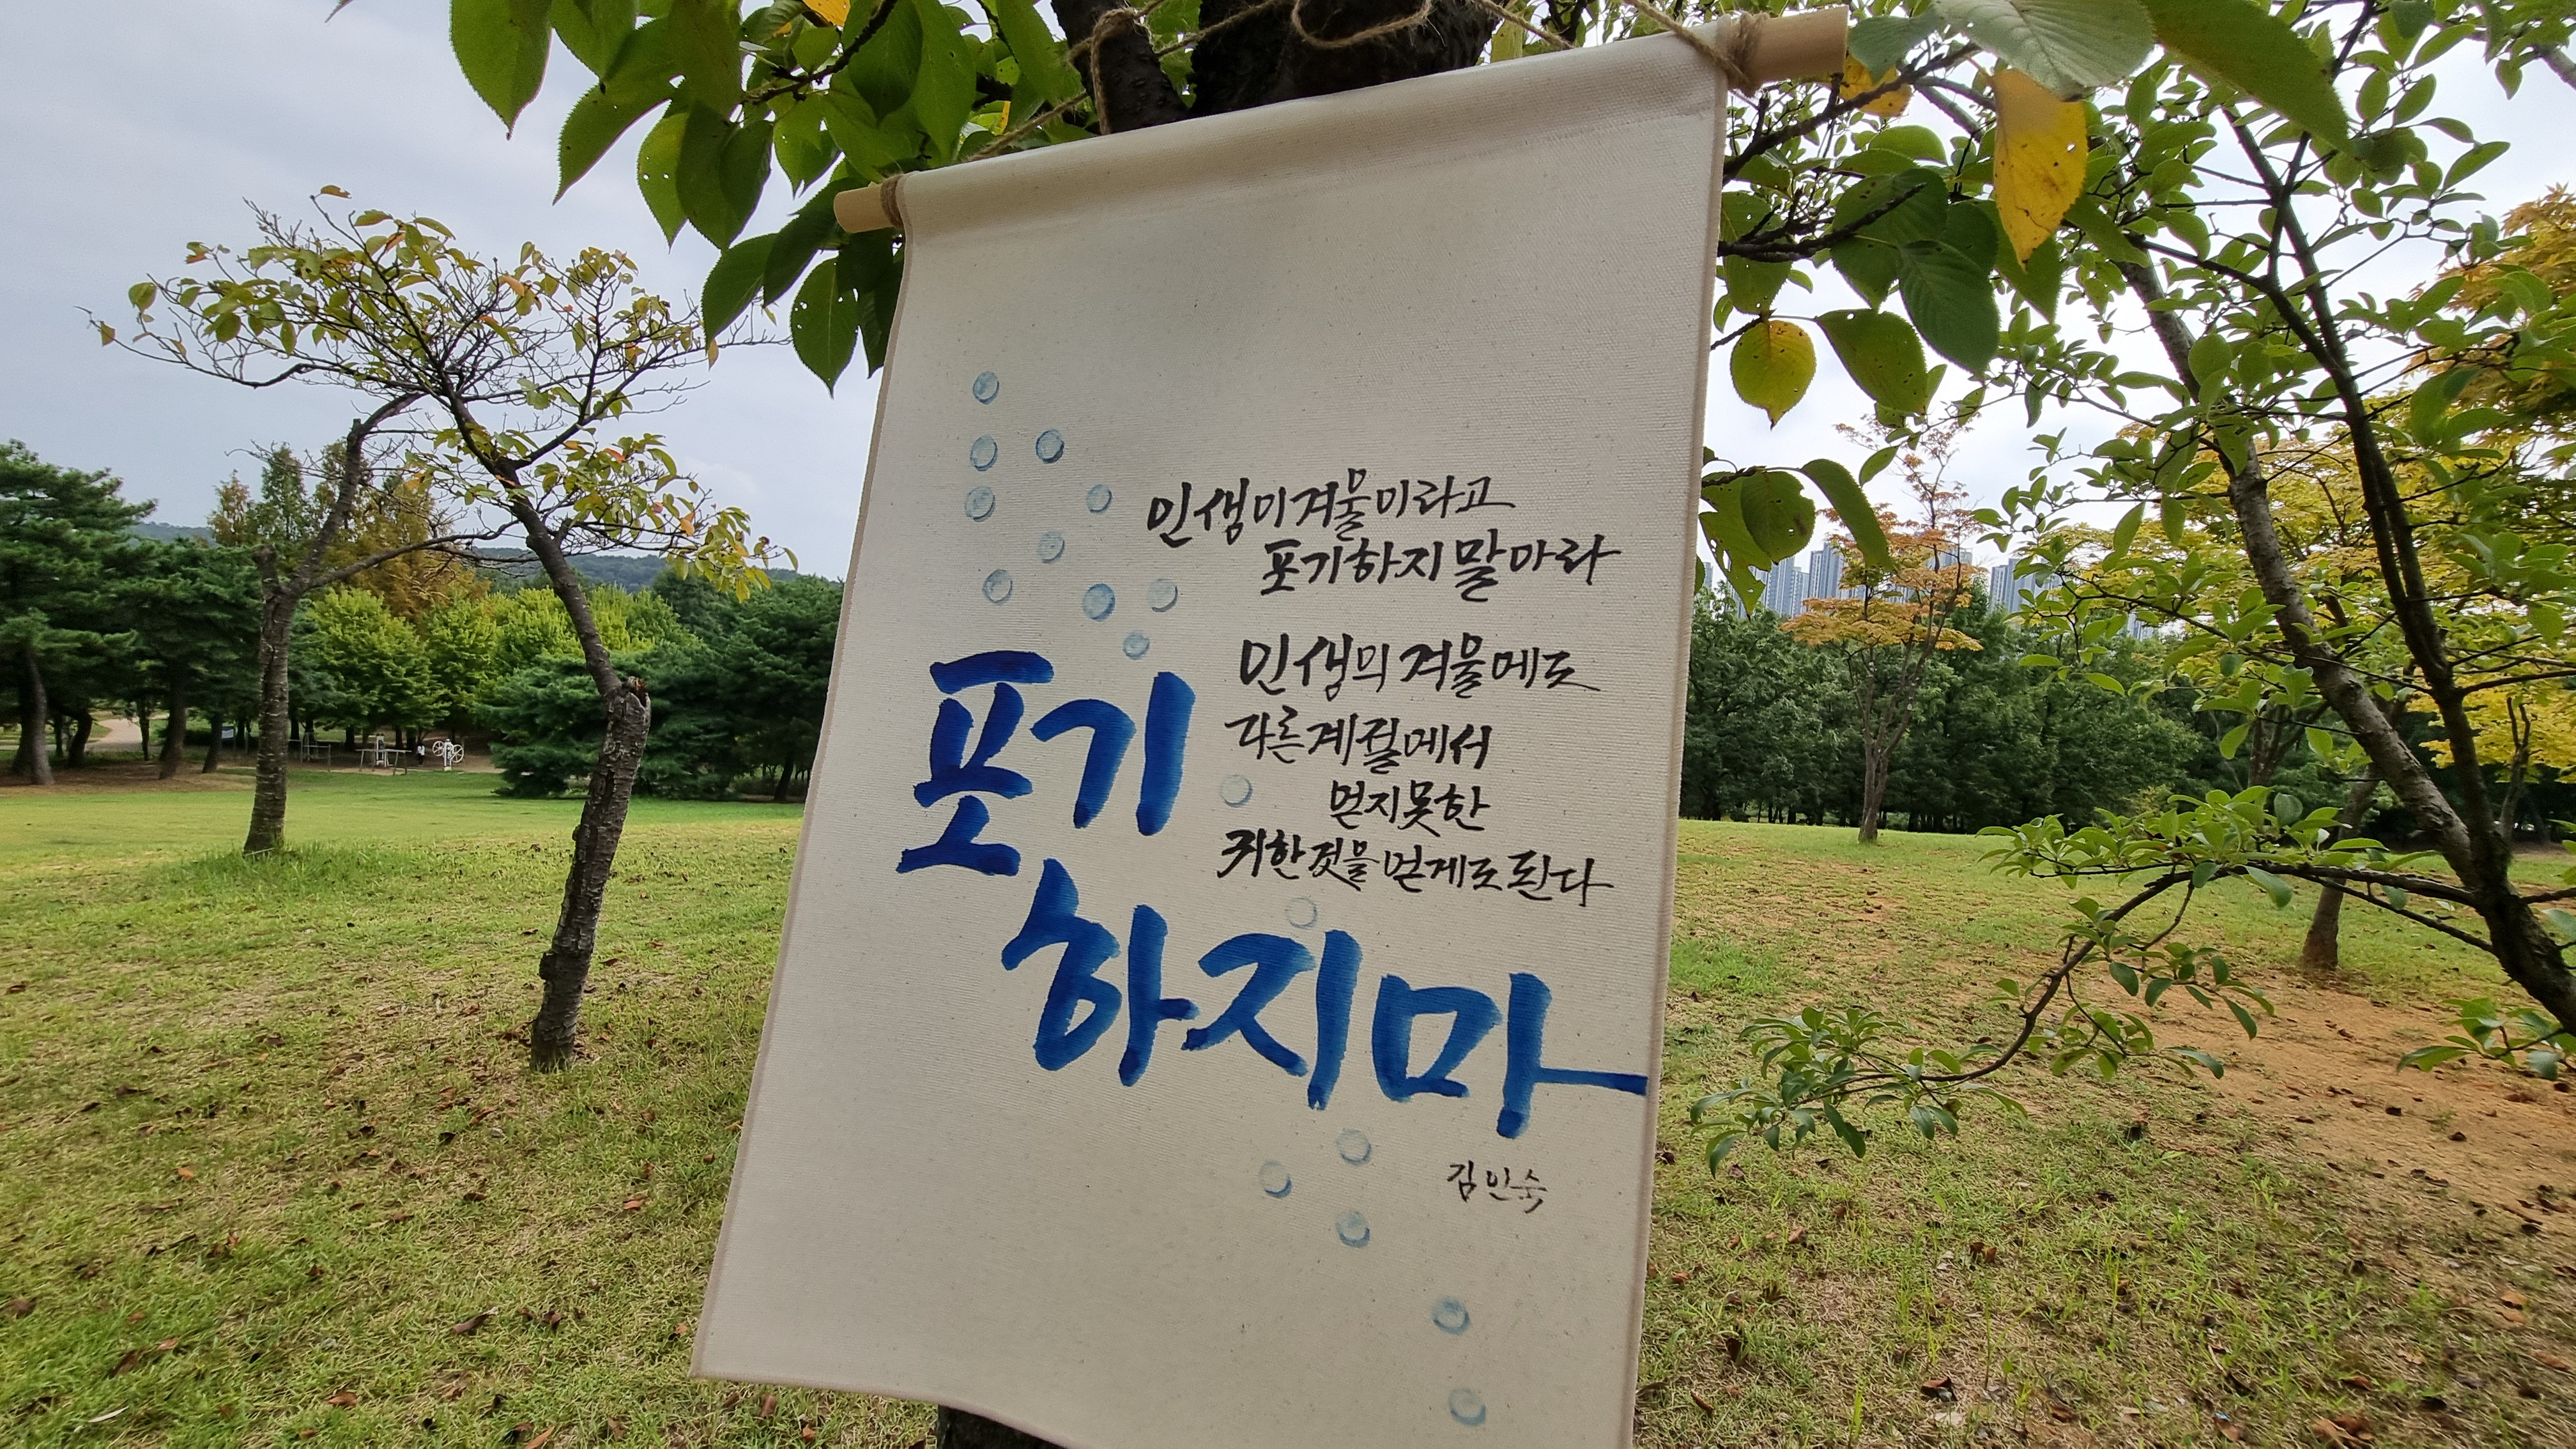 인생이겨울이라고
포기하지말아라
인생의겨울에도
다른계절에서
얻지못한
귀한것을얻게도된다
포기
하지마
김인숙